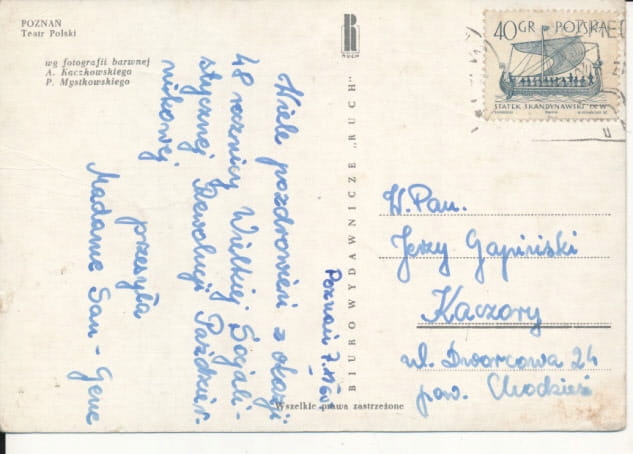 POZNAŃ
Teatr Polski
wg fotografii barwnej
A. Kaczkowskiego
P. Mystkowskiego
R
RUCH
40 GR POLSKA
STATEK SKANDYNAWSKI IX W
Poznań 7.
Wiele pozdrowień z okazji
48 rocznicy Wielkiej Socjali-
stycznej Rewolucji Paździer-
nikowej
przesyła
Madame San-Gene
BIURO WYDAWNICZE „RUCH"
W.Pan.
Jerzy Gapiński
Kaczory
ul. Dworcowa 24
pow. Chodzież
Wszelkie prawa zastrzeżone